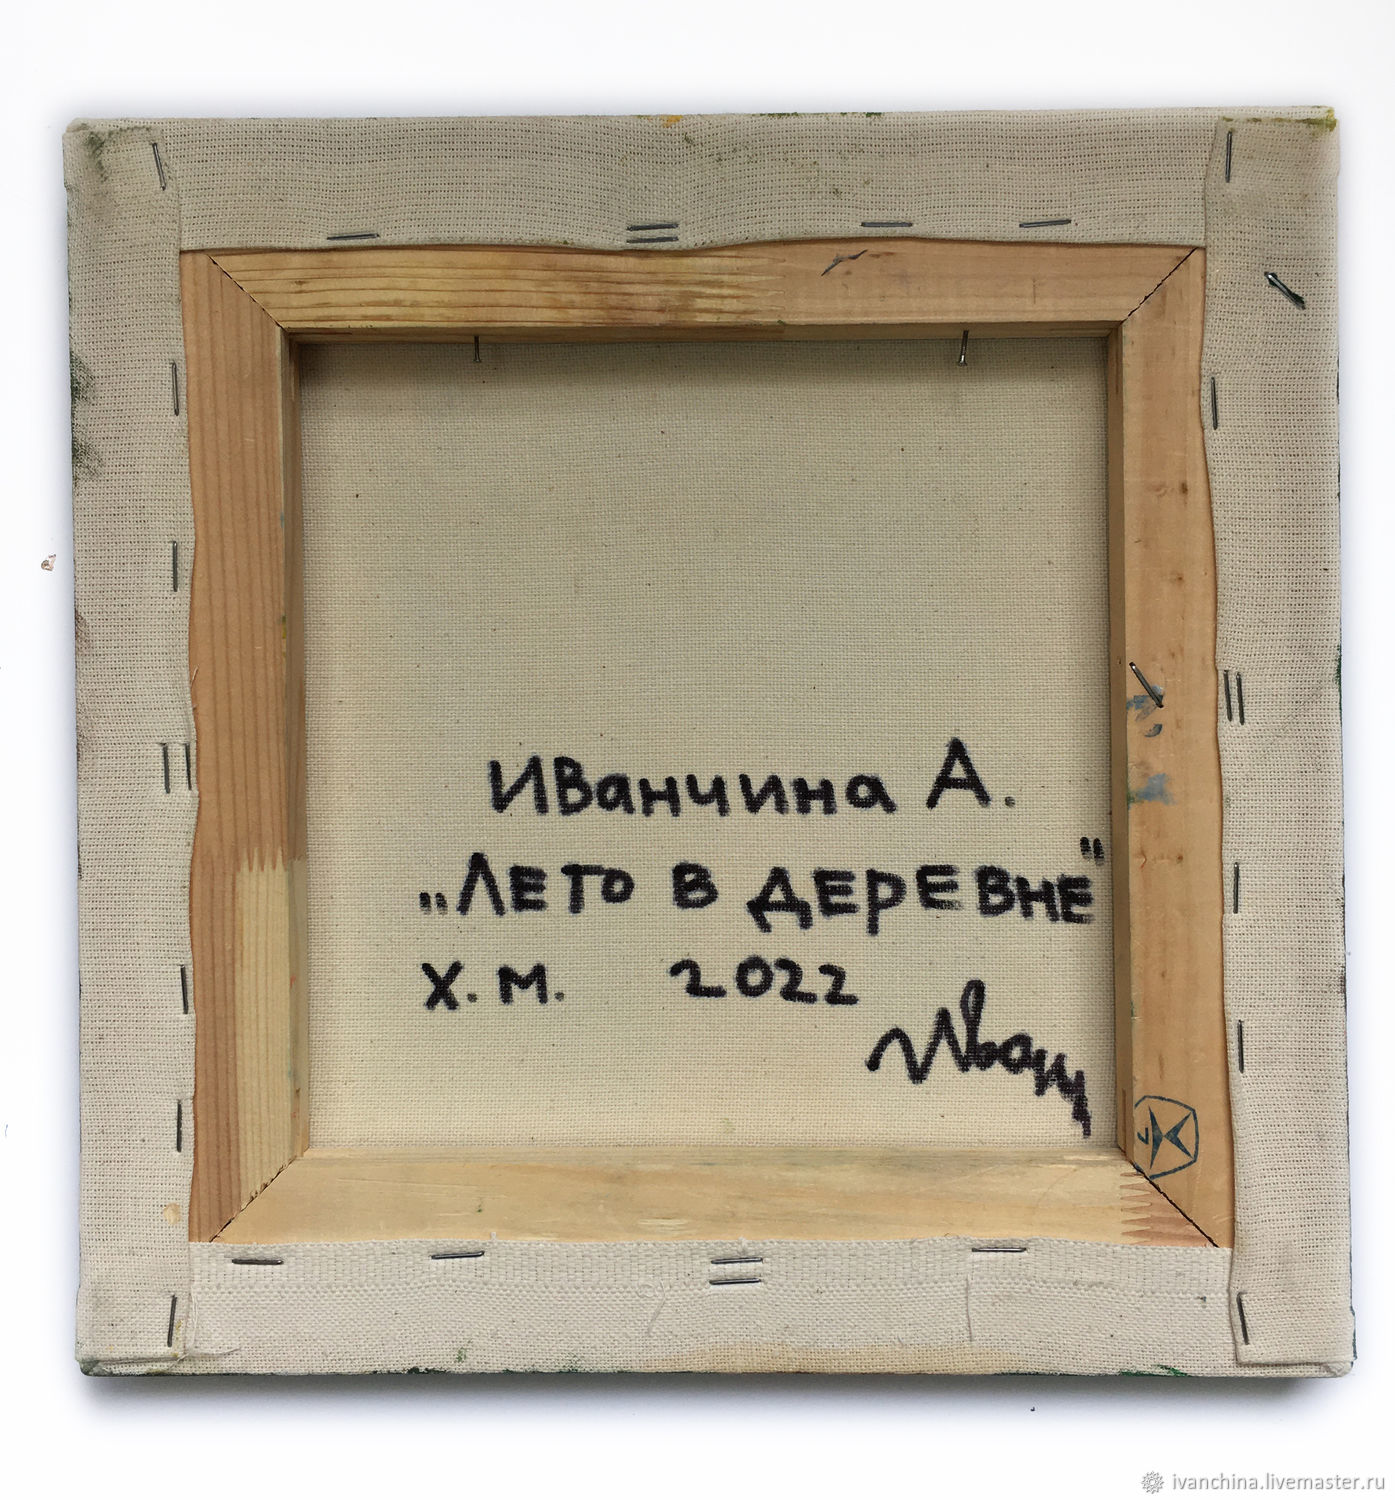 Иванчина А.
„Лето в деревне"
х.м. 2022
Иванч
ivanchina.livemaster.ru